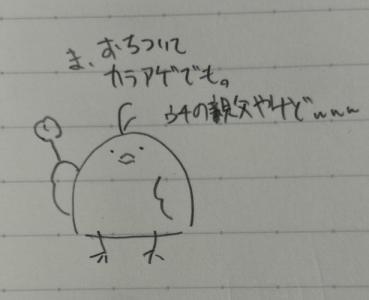 ま、おちついて
カラアゲでも。
ウチの親父やけどwww